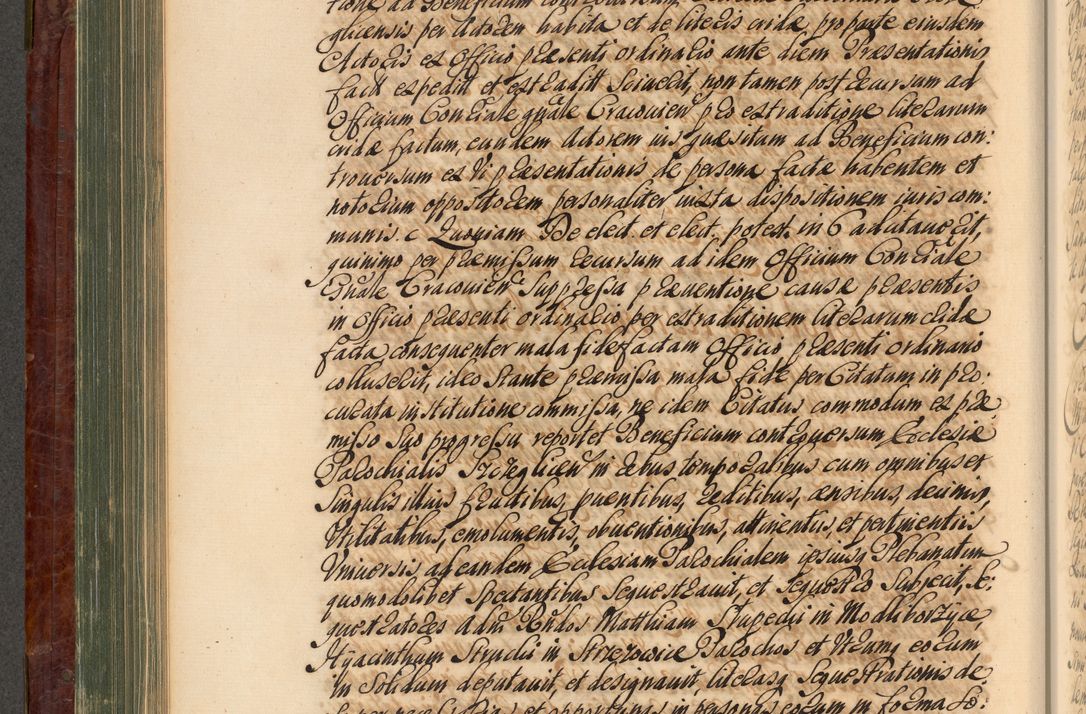 glicensis per Actorem habita et de literis cridæ pro parte eiusdem
Actoris ex Officio præsenti ordinario ante diem Præsentationis
facti expedit et extradit sciverit, non tamen post recursum ad
Officium Con̄riale gn̄ale Cracovien̄ pro extraditione literarum
cridæ factum, eundem Actorem ius quæsitum ad Beneficium con:
troversum ex vi præsentationis de persona factæ habentem et
notorium oppositorem personaliter iuxta dispositionem iuris com:
munis. c Quoniam De elect. et elect. potest. in 6 ad citaverit,
quinimo per præmissum recursum ad idem Officium Con̄riale
Gn̄ale Cracovien̄ suppressa præventione causæ præsentis
in Officio præsenti ordinario per extraditionem literarum cridæ
facta, consequenter mala fide factam Officio præsenti ordinario
colluserit, ideo stante præmissa mala fide per Citatum in pro:
curata institutione commissa, ne idem Citatus commodum ex præ
misso suo progressu reportet Beneficium controversum, Ecclesiæ
Parochialis Strzeglicen̄ in rebus temporalibus cum omnibus et
singulis illius fructibus, proventibus, reditibus, censibus, decimis,
Utilitatibus, emolumentis, obventionibus, attinentiis, et pertinentiis
Universis ad eandem Ecclesiam Parochialem ipsiusq Plebanatum
quomodolibet spectantibus sequestravit, et sequestro subjecit, se:
questratores Adm̄ Rn̄dos Matthiam Stupecki in Modliborzyce
Hyacinthum Strucki in Strzezowice Parochos et Utrumq eorum
in solidum deputavit, et designavit, literasq sequestrationis de